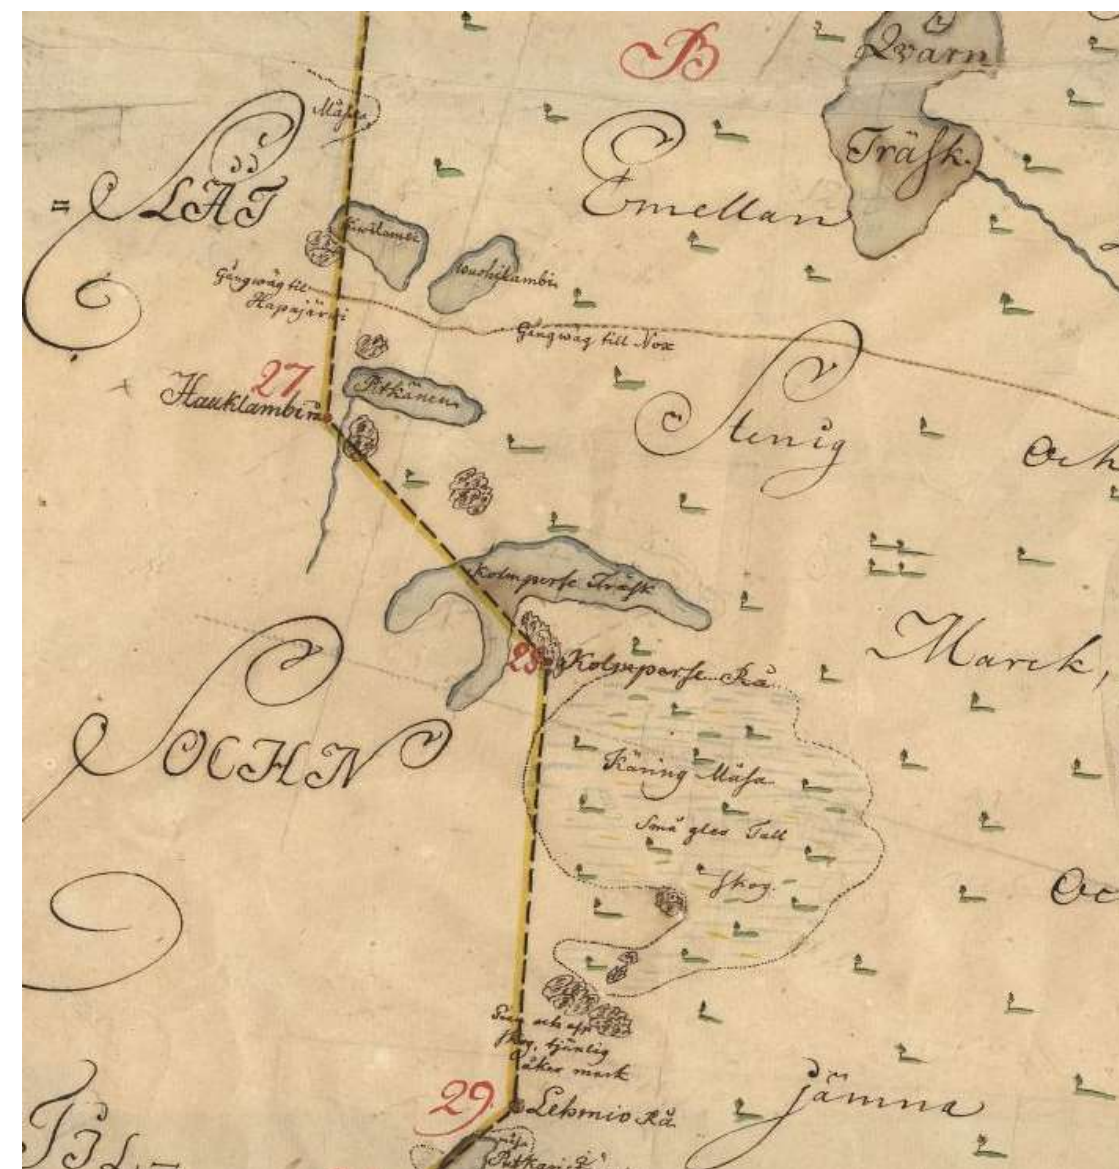 B
Qvärn
Träsk.
Måsa
= SLÄT
Emellan
Kivilambi
Gångwäg til
Hapajärvi
Gångwäg till Nox
27
Pitkänen
Stenig
Och
Kolmperse Träsk
28
Kolmperse Rå
Marck,
SOCHN
Käring Måsa
Små gles Tall
skog.
Oc
skog, tjänlig
åker mark
29.
Lehmio Rå
jämna
TIL-